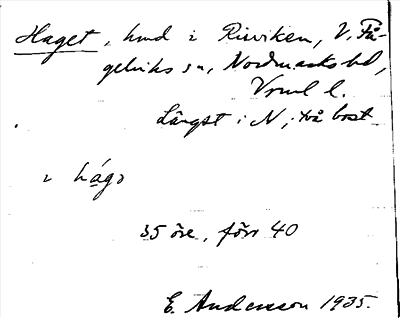 Haget, hmd i Risviken, V. Få-
gelviks sn, Nordmarks hd,
Vrml l.
Längst i N; två bost.
i hágə
35 öre, förr 40
E. Andersson 1935.